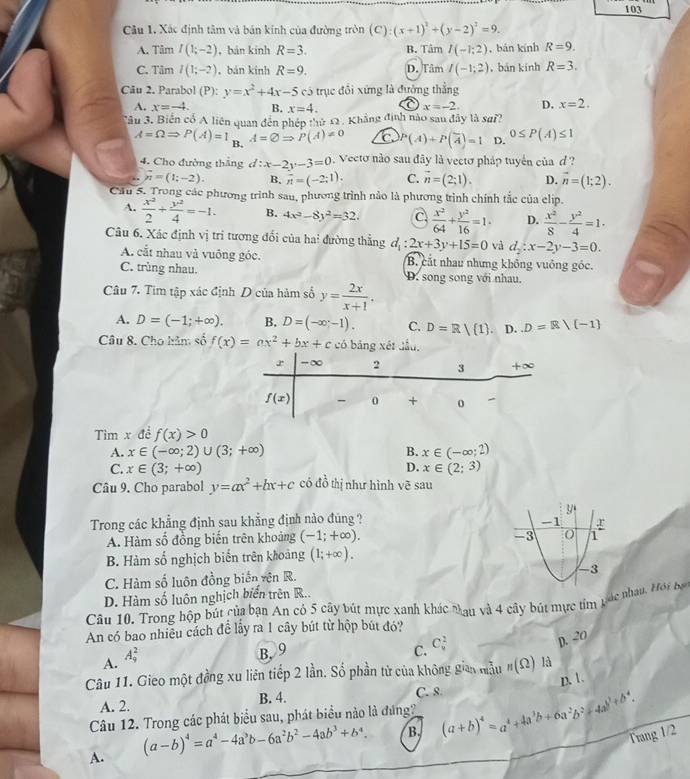 103
Câu 1. Xác định tâm và bán kính của đường tròn (C):(x+1)²+(y−2)²=9.
A. Tâm I(1;−2), bán kính R=3. B. Tâm I(−1;2), bán kính R=9.
C. Tâm I(1;−2), bán kính R=9. D. Tâm I(−1;2), bán kính R=3.
Câu 2. Parabol (P): y=x²+4x−5 có trục đối xứng là đường thẳng
A. x=−4. B. x=4. C x=−2. D. x=2.
Câu 3. Biến cố A liên quan đến phép thử Ω. Khẳng định nào sau đây là sai?
A=Ω⇒P(A)=1 B. A=∅⇒P(A)≠0 C. P(A)+P(A̅)=1 D. 0≤P(A)≤1
4. Cho đường thẳng d:x−2y−3=0. Vectơ nào sau đây là vectơ pháp tuyến của d?
n⃗=(1;−2). B. n⃗=(−2;1). C. n⃗=(2;1). D. n⃗=(1;2).
Câu 5. Trong các phương trình sau, phương trình nào là phương trình chính tắc của elip.
A. x²/2+y²/4=−1. B. 4x²−8y²=32. C. x²/64+y²/16=1. D. x²/8−y²/4=1.
Câu 6. Xác định vị trí tương đối của hai đường thẳng d₁:2x+3y+15=0 và d₂:x−2y−3=0.
A. cắt nhau và vuông góc. B. cắt nhau nhưng không vuông góc.
C. trùng nhau. D. song song với nhau.
Câu 7. Tìm tập xác định D của hàm số y=2x/(x+1).
A. D=(−1;+∞). B. D=(−∞;−1). C. D=ℝ\{1}. D. .D=ℝ\{−1}
Câu 8. Cho hàm số f(x)=ax²+bx+c có bảng xét dấu.
x −∞ 2 3 +∞
f(x) − 0 + 0 −
Tìm x để f(x)>0
A. x∈(−∞;2)∪(3;+∞) B. x∈(−∞;2)
C. x∈(3;+∞) D. x∈(2;3)
Câu 9. Cho parabol y=ax²+bx+c có đồ thị như hình vẽ sau
Trong các khẳng định sau khẳng định nào đúng?
A. Hàm số đồng biến trên khoảng (−1;+∞).
B. Hàm số nghịch biến trên khoảng (1;+∞).
C. Hàm số luôn đồng biến trên R.
D. Hàm số luôn nghịch biến trên R..
y
−1 x
−3 O 1
−3
Câu 10. Trong hộp bút của bạn An có 5 cây bút mực xanh khác nhau và 4 cây bút mực tím khác nhau. Hỏi bạn
An có bao nhiêu cách để lấy ra 1 cây bút từ hộp bút đó?
A. A₉² B. 9 C. C₉² D. 20
Câu 11. Gieo một đồng xu liên tiếp 2 lần. Số phần tử của không gian mẫu n(Ω) là
A. 2. B. 4. C. 8. D. 1.
Câu 12. Trong các phát biểu sau, phát biểu nào là đúng?
A. (a−b)⁴=a⁴−4a³b−6a²b²−4ab³+b⁴. B. (a+b)⁴=a⁴+4a³b+6a²b²+4ab³+b⁴.
Trang 1/2